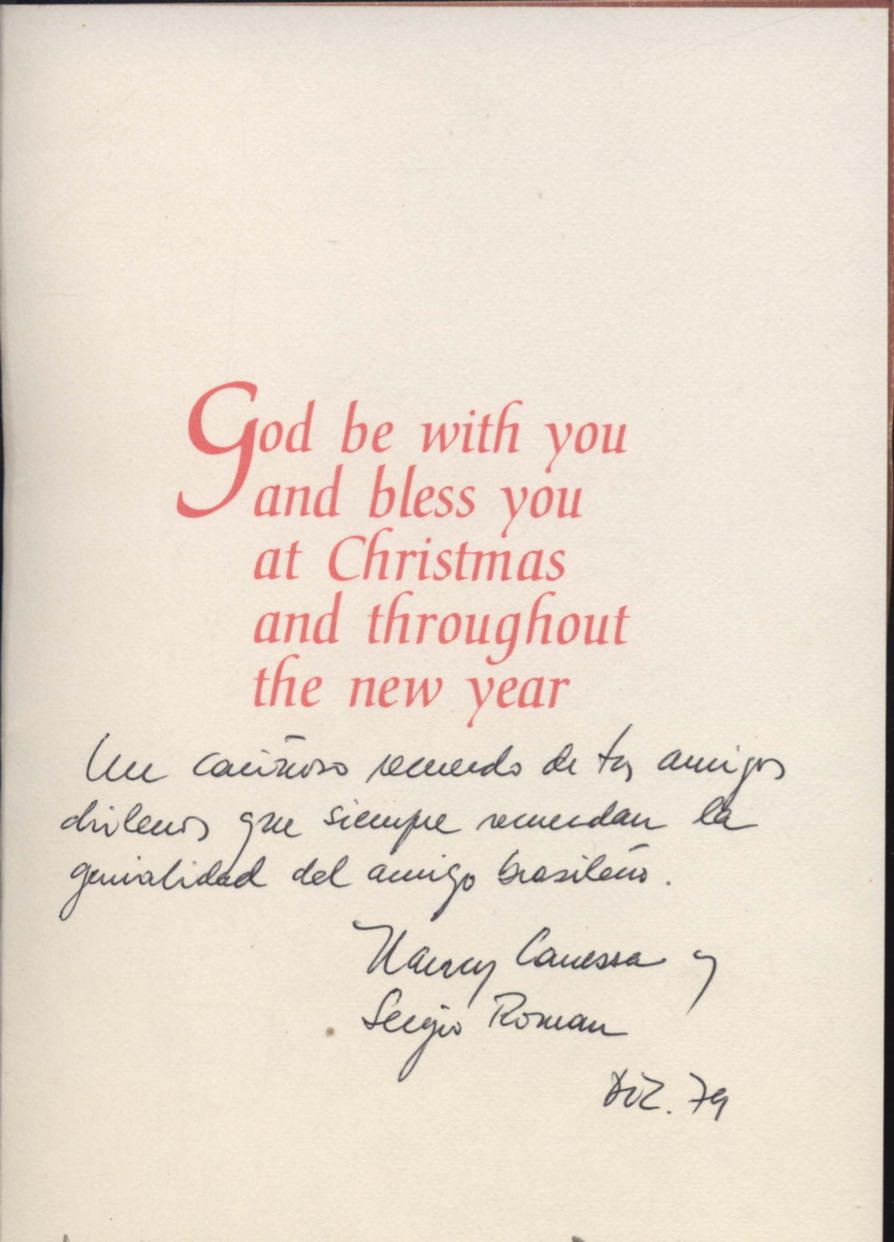 God be with you
and bless you
at Christmas
and throughout
the new year
Un cariñoso recuerdo de tus amigos
chilenos que siempre recuerdan la
genialidad del amigo brasileño.
Nancy Canessa y
Sergio Roman
Dic. 79